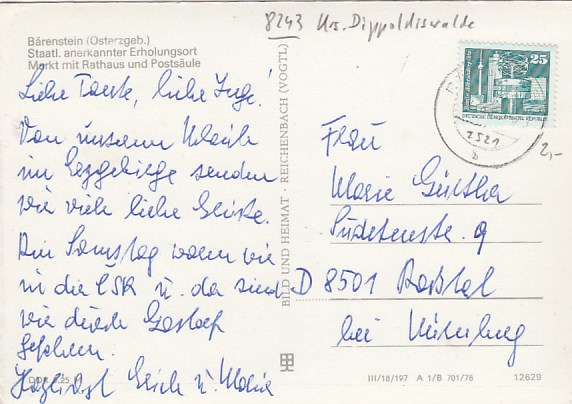 8243 Krs. Dippoldiswalde
Bärenstein (Osterzgeb.)
Staatl. anerkannter Erholungsort
Markt mit Rathaus und Postsäule
Liebe Tante, liebe Inge!
Von unserem Urlaub
im Erzgebirge senden
wir viele liebe Grüße.
Am Samstag waren wir
in die ČSR u. da sind
wir durch
gefahren.
Herzlichst Erich u. Maria
DDR 0,25 M
BILD UND HEIMAT · REICHENBACH (VOGTL)
25
DEUTSCHE DEMOKRATISCHE REPUBLIK
2521
b
2,-
Frau
Marie Günther
Sudetenstr. 9
D 8501 Roßtal
bei Nürnberg
III/18/197 A 1/B 701/76
12629